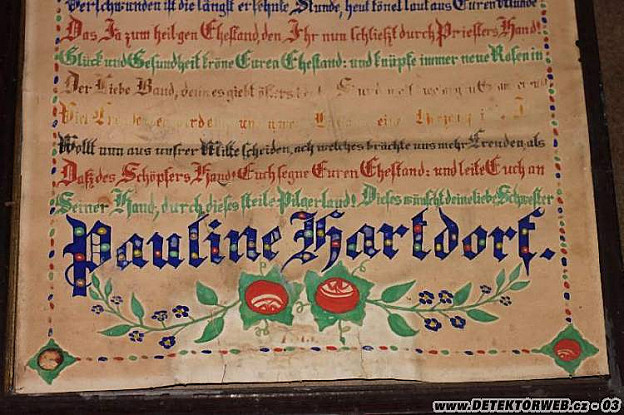 Verschwunden ist die längst ersehnte Stunde, heut tönet laut aus Euren Munde
Das Ja zum heilgen Ehestand, den Ihr nun schließt durch Priesters Hand!
Glück und Gesundheit kröne Euren Ehestand: und knüpfe immer neue Rosen in
Der Liebe Band, denn es giebt
Wollt nun aus unsrer Mitte scheiden, ach welches brächte uns mehr Freuden, als
Daß des Schöpfers Hand! Euch segne Euren Ehestand: und leite Euch an
Seiner Hand, durch dieses steile Pilgerland! Dieses wünscht deine liebe Schwester
Pauline Hartdorf.
www.DETEKTORWEB.cz - 03